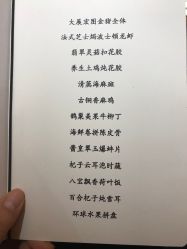 大展宏图金猪全体
法式芝士焗波士顿龙虾
翡翠灵菇扣花胶
养生土鸡炖花胶
清蒸海麻斑
古铜香麻鸡
鹤巢美果牛柳丁
海鲜卷拼陈皮骨
酱皇翠玉爆蚌片
杞子云耳浸时蔬
八宝飘香荷叶饭
百合杞子炖雪耳
环球水果拼盘